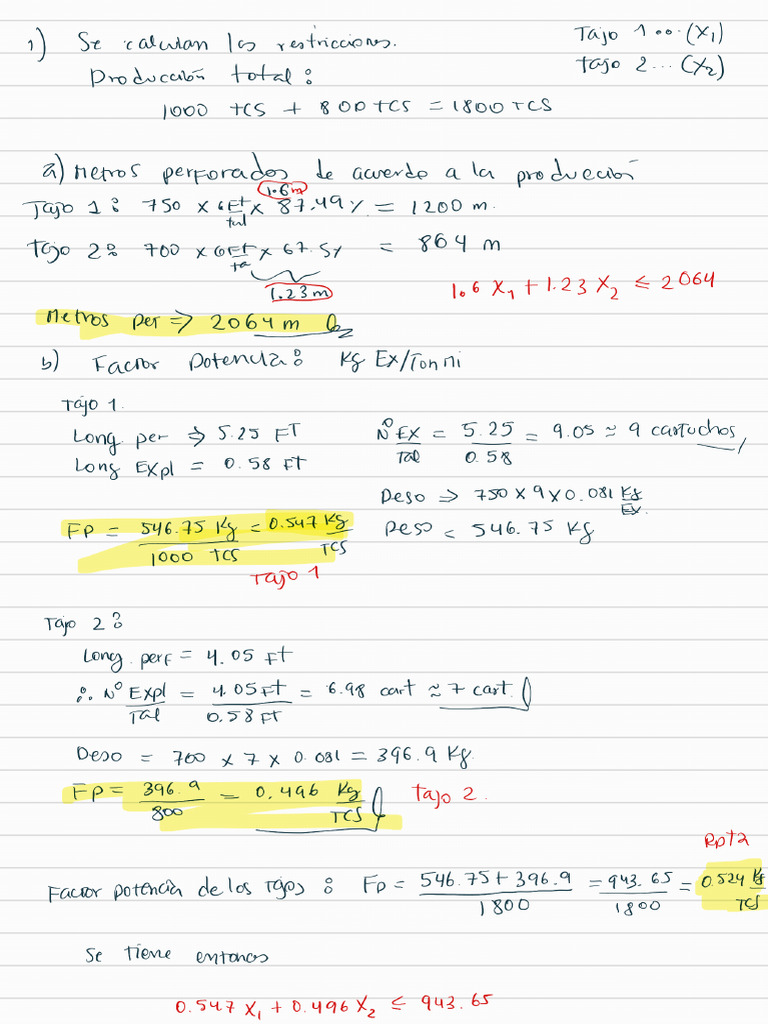 1) Se calculan las restricciones.
Tajo 1 ... (X₁)
Tajo 2 ... (X₂)
Producción total:
1000 TCS + 800 TCS = 1800 TCS
a) Metros perforados de acuerdo a la producción
1.6m
Tajo 1: 750 x 6 Ft/tal x 87.49% = 1200 m.
Tajo 2: 700 x 6 Ft/ta x 67.5% = 864 m
1.23 m
1.6 X₁ + 1.23 X₂ ≤ 2064
Metros per => 2064 m
b) Factor Potencia: Kg Ex/Ton mi
Tajo 1.
Long. per => 5.25 FT
Long Expl = 0.58 Ft
N° Ex/Tal = 5.25/0.58 = 9.05 ≈ 9 cartuchos
Peso => 750 x 9 x 0.081 Kg/Ex.
Peso = 546.75 Kg
FP = 546.75 Kg/1000 TCS = 0.547 Kg/TCS
Tajo 1
Tajo 2:
Long. perf = 4.05 Ft
∴ N° Expl/Tal = 4.05 Ft/0.58 Ft = 6.98 cart ≈ 7 cart.
Peso = 700 x 7 x 0.081 = 396.9 Kg.
FP = 396.9/800 = 0.496 Kg/TCS
Tajo 2.
Rpta
Factor potencia de los Tajos: FP = 546.75 + 396.9/1800 = 943.65/1800 = 0.524 Kg/TCS
Se tiene entonces
0.547 X₁ + 0.496 X₂ ≤ 943.65